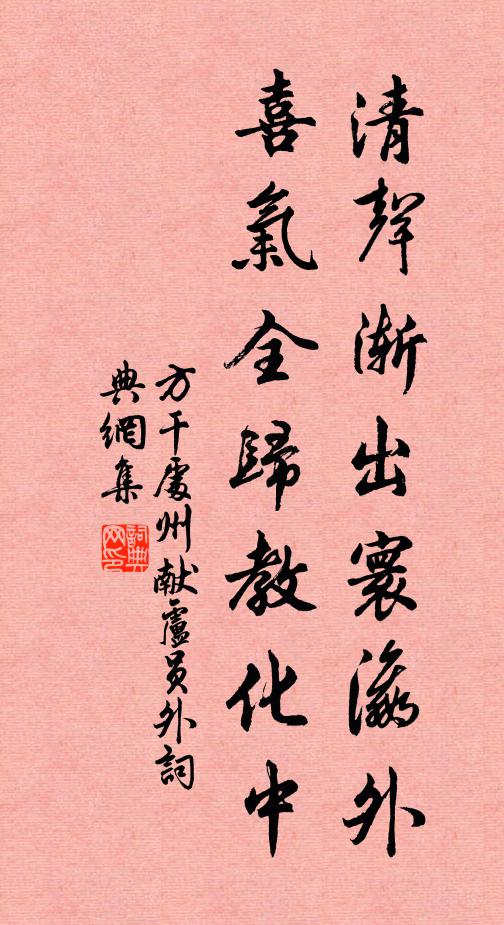 清聲漸出寰瀛外
喜氣全歸教化中
方干處州献盧员外詞
典網集
詞典
网印